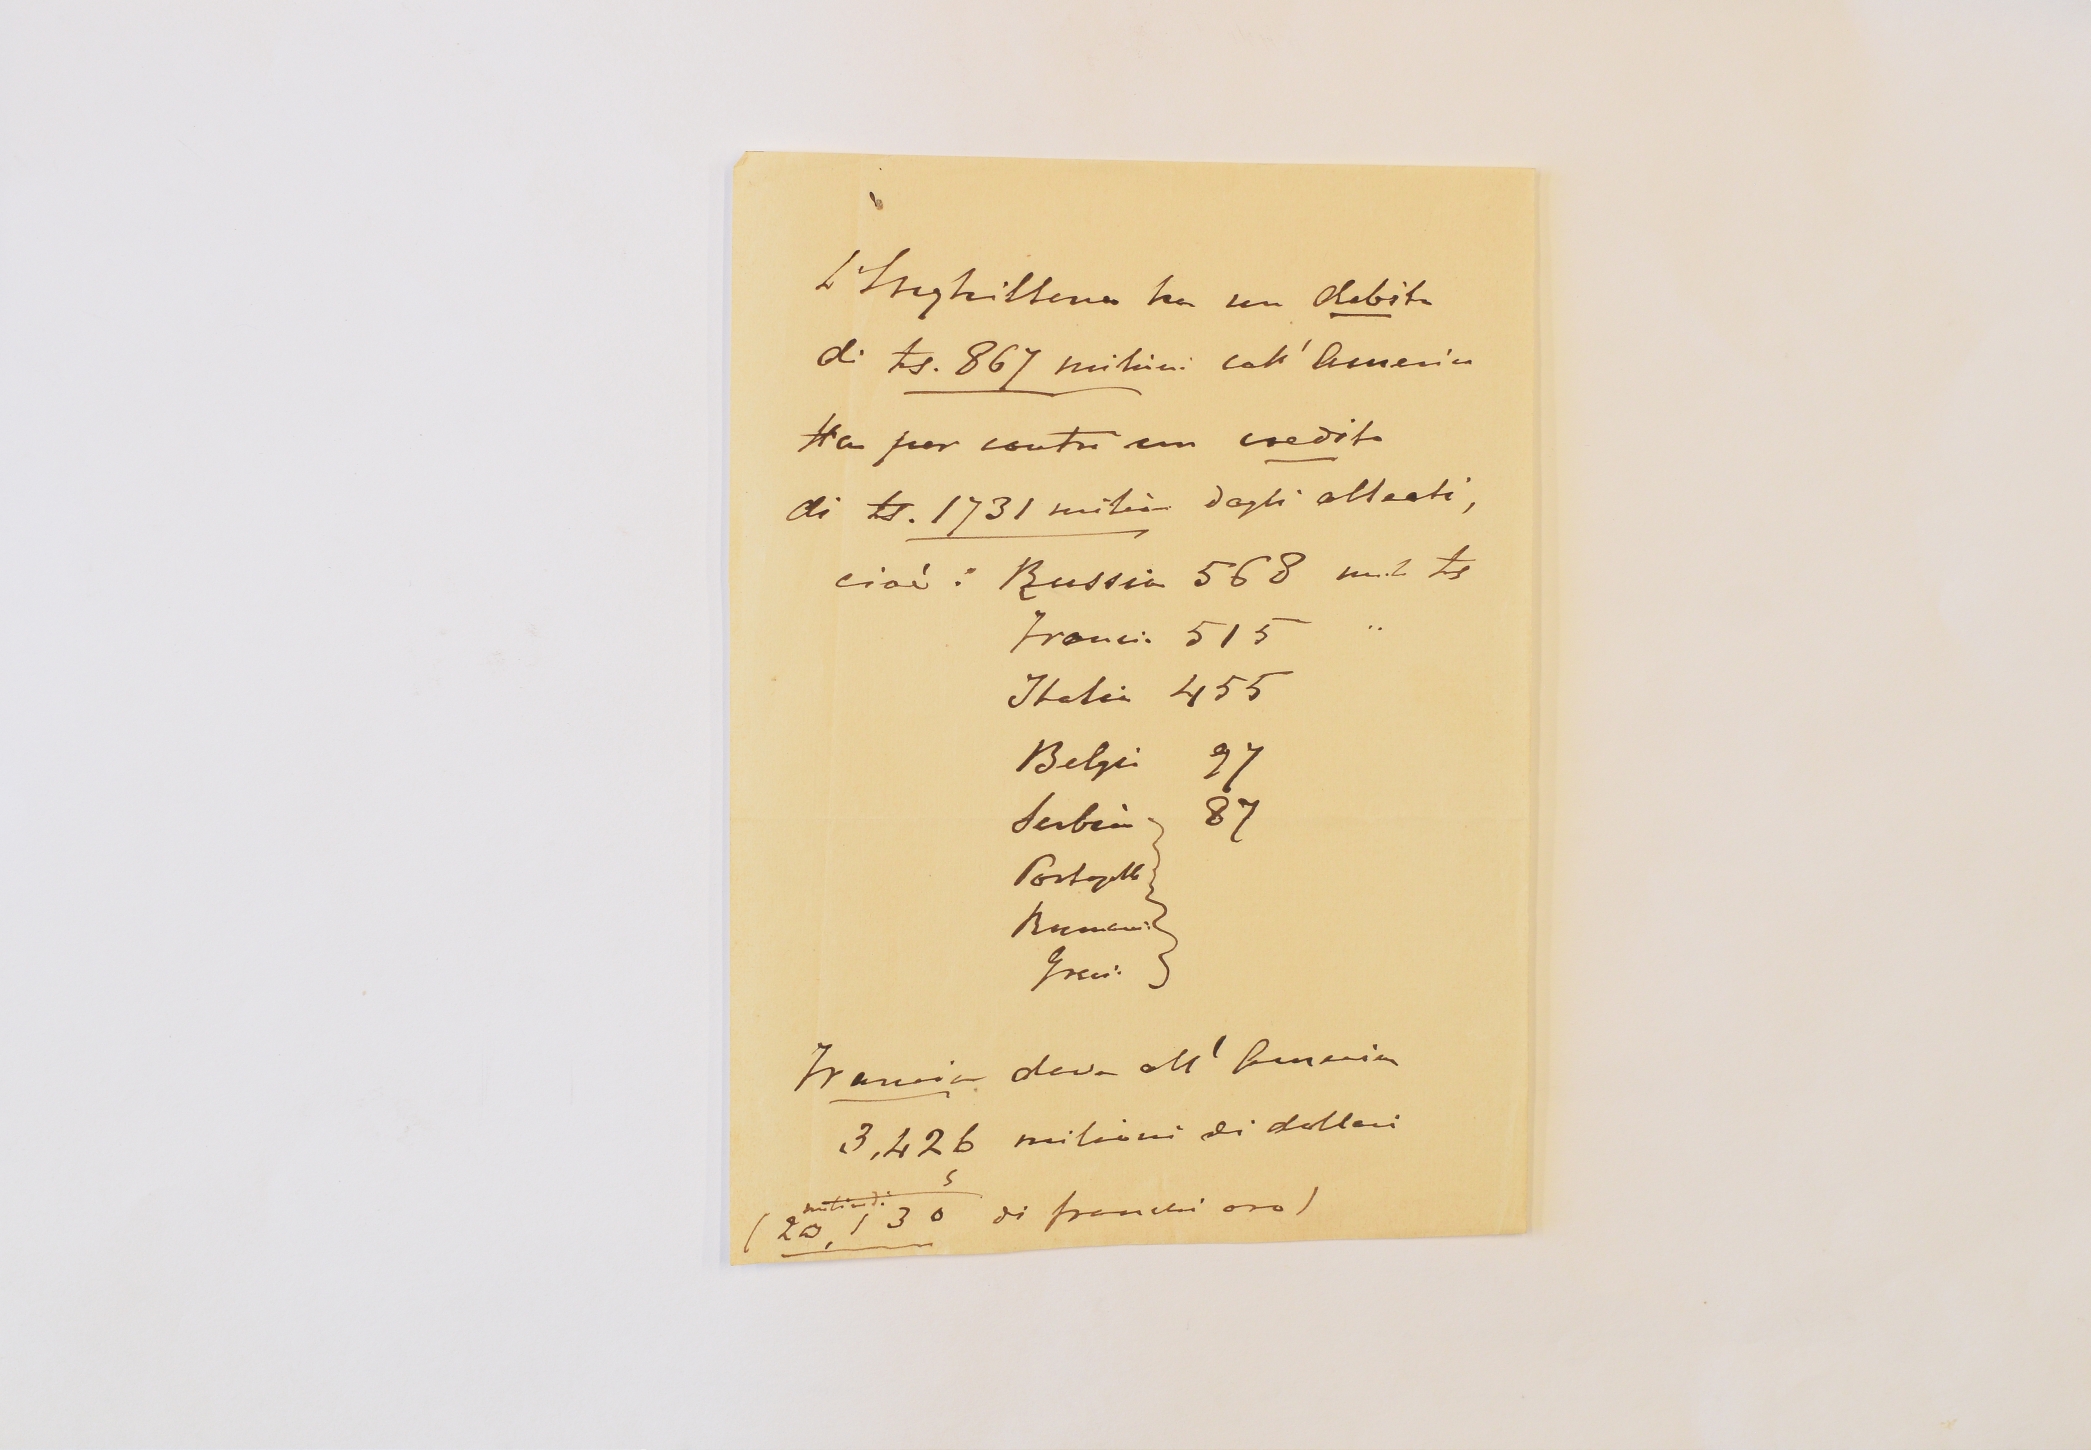 L'Inghilterra ha un debito
di Ls. 867 milioni coll'America
Ha per contro un credito
di Ls. 1731 milioni dagli alleati,
cioè: Russia 568 mil Ls
Francia 515 "
Italia 455
Belgio 97
Serbia 87
Portogallo
Rumania
Grecia
Francia deve all'America
3,426 milioni di dollari
miliardi
(20,130 di franchi oro)